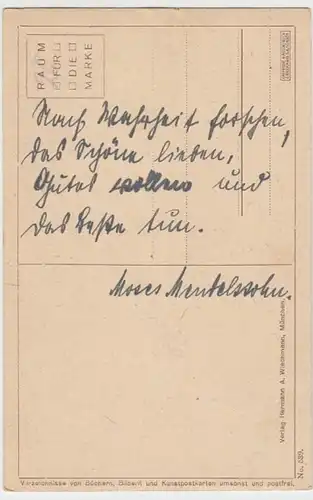 RAUM
FÜR
DIE
MARKE
Nach Wahrheit forschen,
das Schöne lieben,
Gutes wollen und
das beste tun.
Moses Mendelssohn.
Verlag Hermann A. Wiechmann, München.
No. 539.
Verzeichnisse von Büchern, Bildern und Kunstpostkarten umsonst und postfrei.